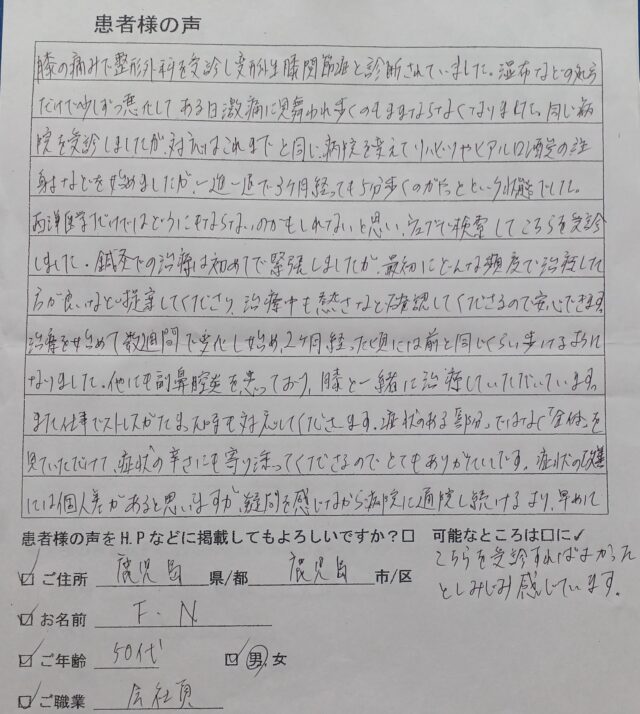 患者様の声
膝の痛みで整形外科を受診し変形性膝関節症と診断されていました。湿布などの処方
だけで少しずつ悪化してある日激痛に見舞われ歩くのもままならなくなりました。同じ病
院を受診しましたが、対応はこれまでと同じ、病院を変えてリハビリやヒアルロン酸の注
射などを始めましたが一進一退で3ヶ月経っても5分歩くのがやっとという状態でした。
西洋医学だけではどうにもならないのかもしれないと思い、ウェブで検索してこちらを受診
しました。鍼灸での治療は初めてで緊張しましたが、最初にどんな頻度で治療した
方が良いなど提案してくださり、治療中も熱さなど確認してくださるので安心できます。
治療を始めて数週間で変化し始め、2ヶ月経った頃には前と同じくらい歩けるように
なりました。他にも副鼻腔炎を患っており、膝と一緒に治療していただいています。
また仕事でストレスがたまった時も対応してくださいます。症状のある部分ではなく「全体」を
見ていただけて、症状の辛さにも寄り添ってくださるのでとてもありがたいです。症状の改善
には個人差があると思いますが、疑問を感じながら病院に通院し続けるより、早めに
患者様の声をH.Pなどに掲載してもよろしいですか?□ 可能なところは□に✓
こちらを受診すればよかった
としみじみ感じています。
☑ご住所 鹿児島 県/都 鹿児島 市/区
☑お名前 F・N
☑ご年齢 50代 ☑男.女
☑ご職業 会社員